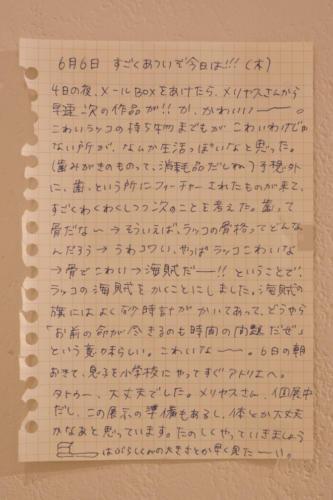 6月6日 すごくあついぞ今日は!!!(木)
4日の夜、メールBOXをあけたら、メリヤスさんから
早速 次の作品が!! か、かわいいー。
こわいラッコの持ち物までもが こわいわけじゃ
ない所が、なんか生活っぽいなと思った。
(歯みがきのものって、消耗品だしね)予想外
に、歯、という所にフィーチャーされたものが来て、
すごくわくわくしつつ次のことを考えた。歯って
骨だな〜→そういえば、ラッコの骨格ってどんな
んだろう→うわコワい、やっぱラッコこわいな
→骨でこわい→海賊だー!! ということで、
ラッコの海賊をかくことにしました。海賊の
旗にはよく砂時計がかいてあって、どうやら
「お前の命が尽きるのも時間の問題だぜ」
という意味らしい。こわいなー。6日の朝
おきて、息子を小学校にやってすぐアトリエへ。
タトゥー、大丈夫でした。メリヤスさん、個展中
だし、この展示の準備もあるし、体とか大丈夫
かなあと思っています。たのしくやっていきましょう
はぶらしくんの大きさとか早く見たーい。